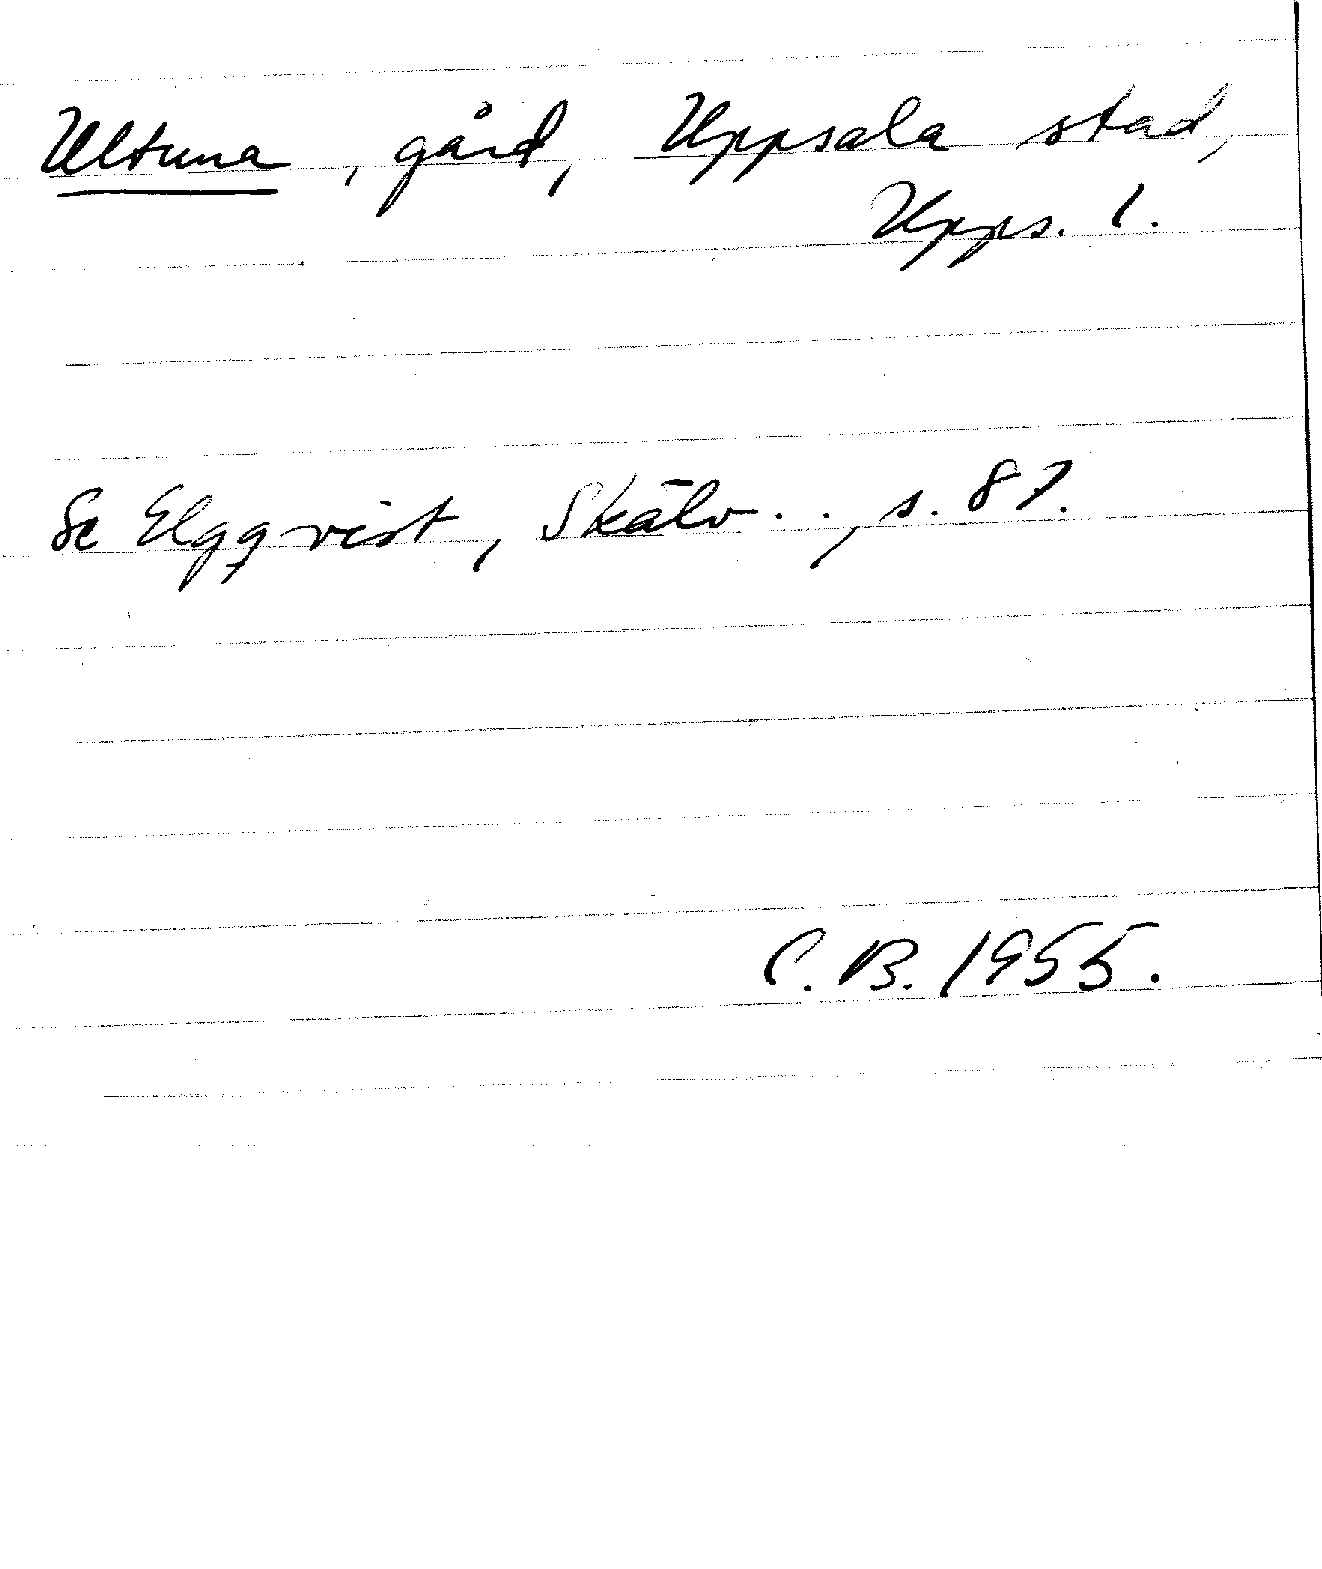 Ultuna, gård, Uppsala stad,
Upps. l.
Se Elgqvist, Skälv . . , s. 87.
C. B. 1955.